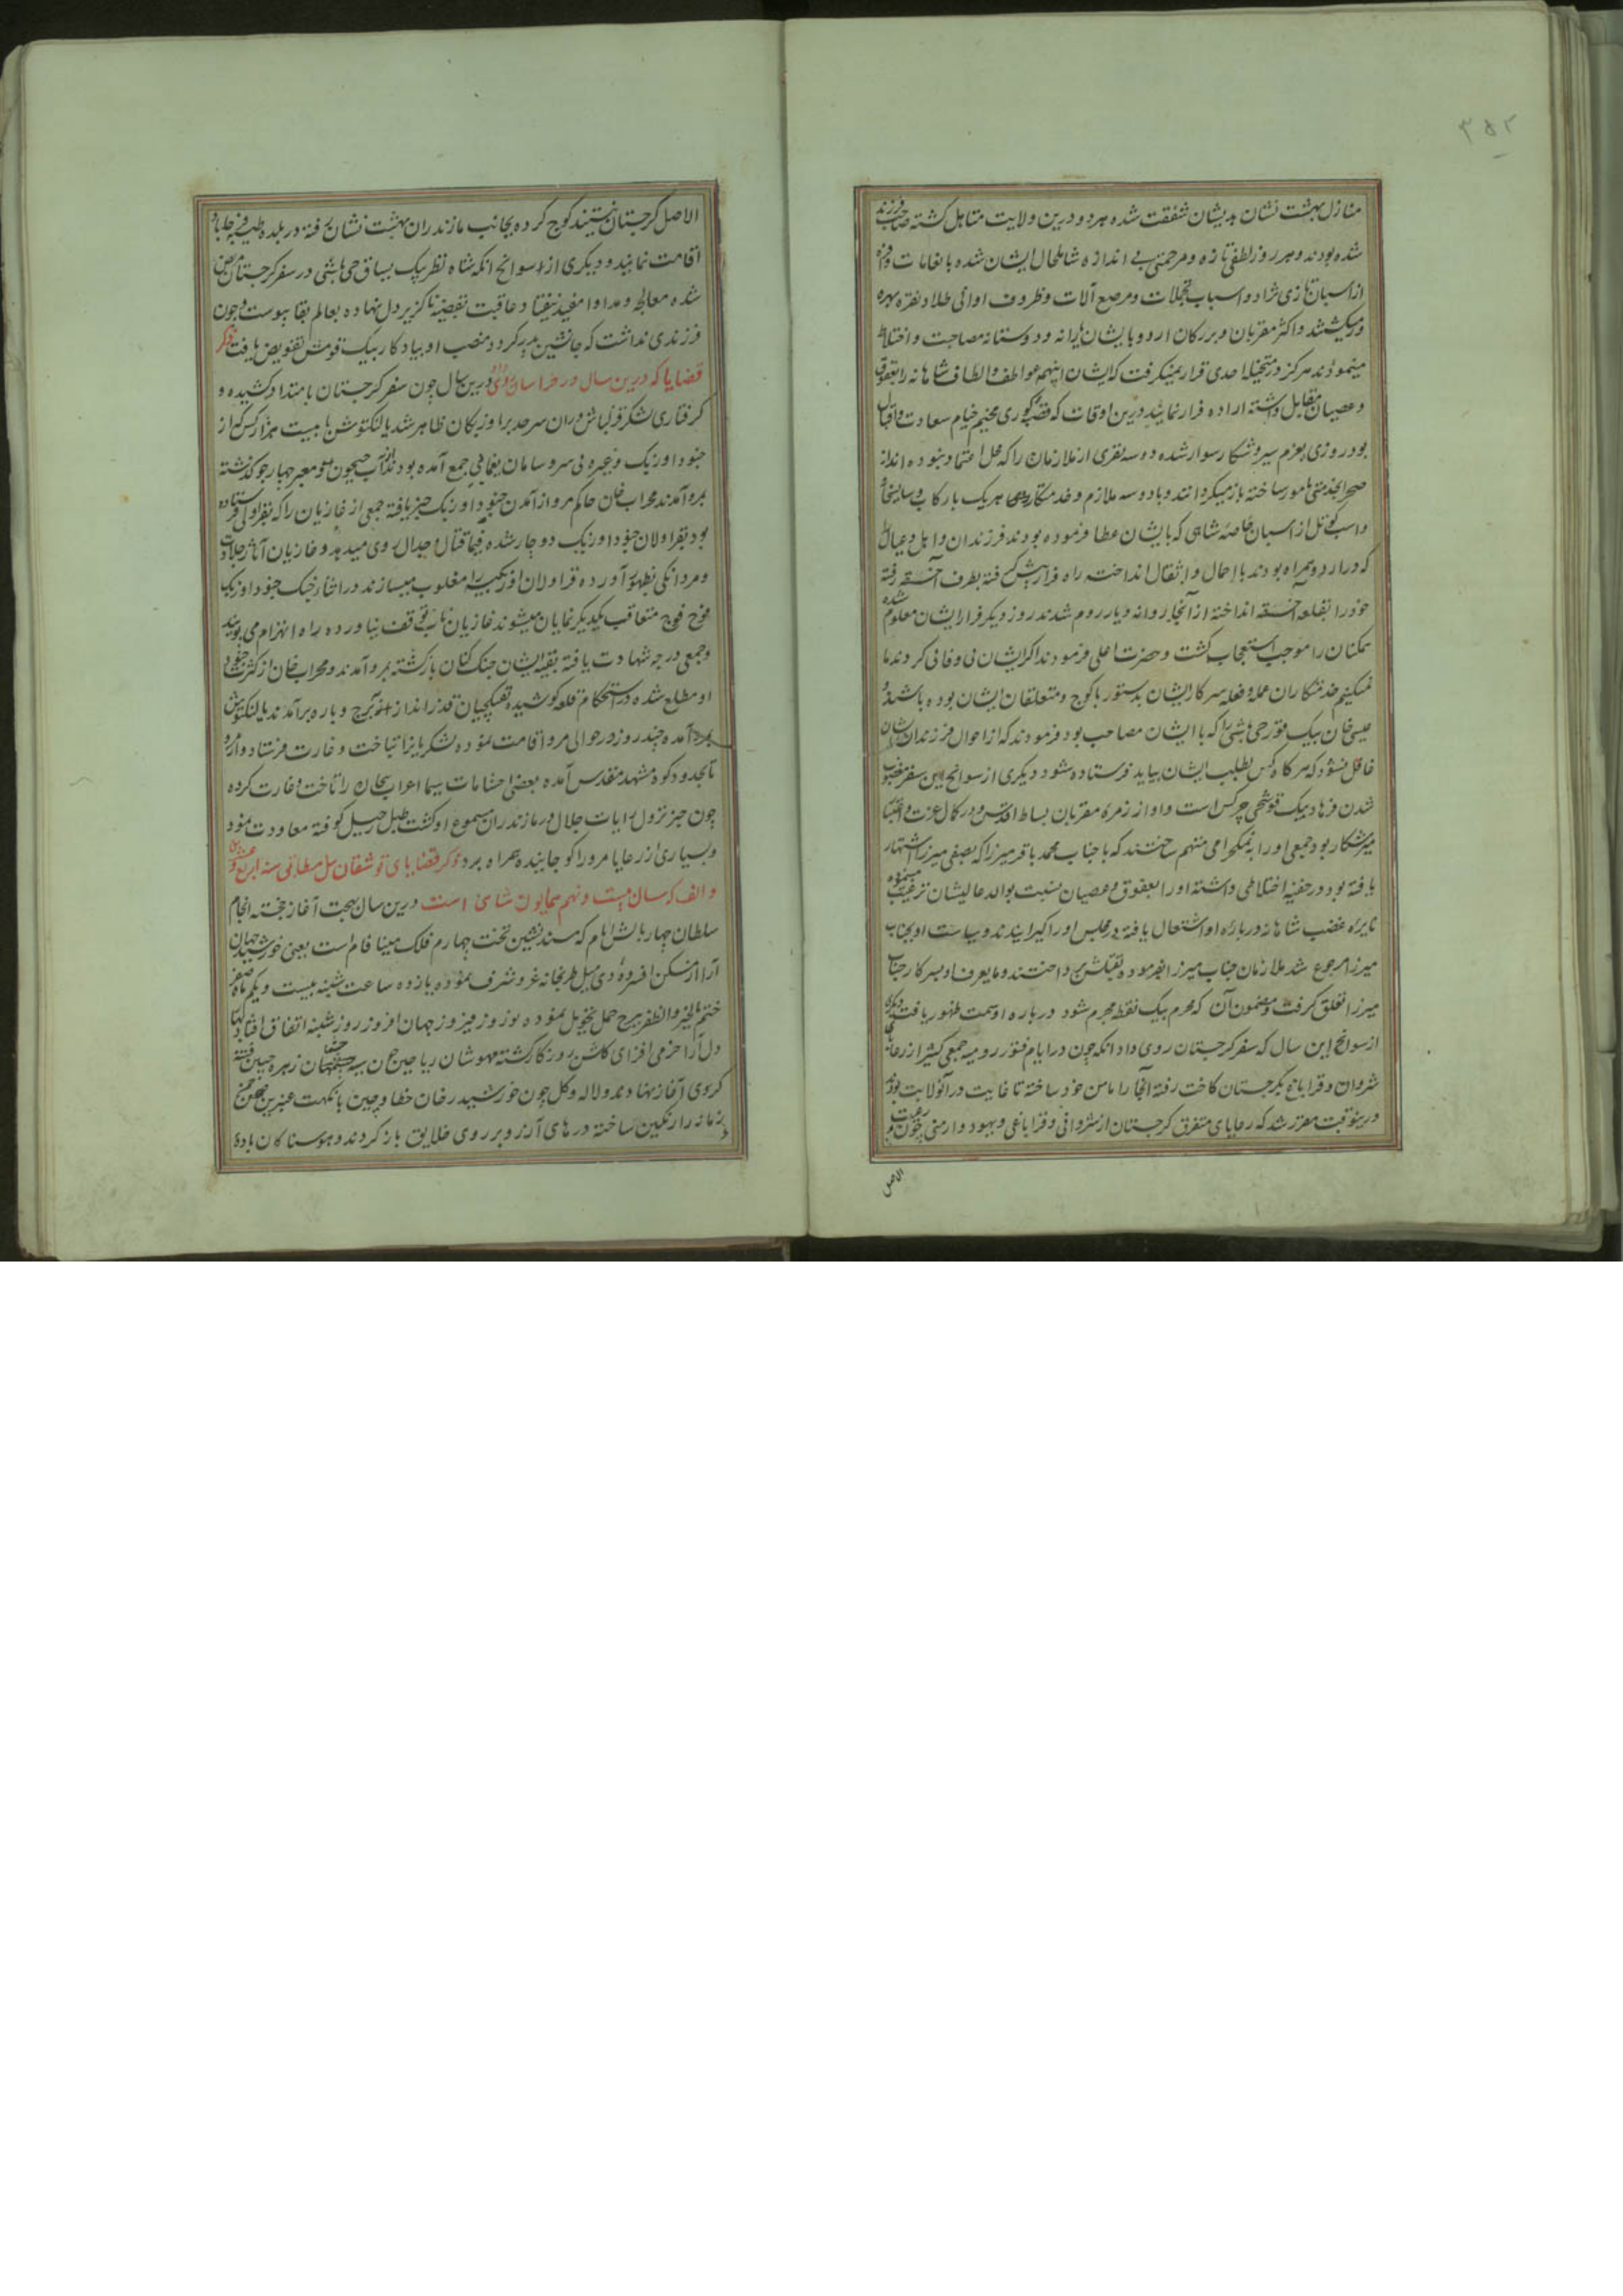 ۳۵۲
منازل بهشت نشان بدیشان شفقت شده هر دو درین ولایت متاهل گشته صاحب فرزند
شده بودند و هر روز لطفی تازه و مرحمتی بی اندازه شامل حال ایشان شده بانعامات وافره
از اسبان تازی نژاد و اسباب تجملات و مرصع آلات و ظروف اوانی طلا و نقره بهره
ور میگشتند و اکثر مقربان و بزرگان اردو با ایشان یارانه و دوستانه مصاحبت و اختلاط
مینمودند هرگز در متخیله احدی قرار نمیگرفت که ایشان اینهمه عواطف و الطاف شاهانه را بعقوق
و عصیان مقابل داشته اراده فرار نمایند درین اوقات که قصبه گوری مخیم خیام سعادت و اقبال
بود روزی بعزم سیر و شکار سوار شده دو سه نفری از ملازمان را که محل اعتماد نبوده اند از
صحرا بخدمتی مامور ساخته باز میگردانند و با دو سه ملازم و خدمتکار هر یک بارکاب
و اسب کوتل از اسبان خاصه شاهی که بایشان عطا فرموده بودند فرزندان و اهل و عیال
که در اردو همراه بودند با احمال و اثقال انداخته راه فرار پیش گرفته بطرف آخسقه رفته
خود را بقلعه آخسقه انداخته از آنجا روانه دیار روم شدند روز دیگر فرار ایشان معلوم شده
همکنان را موجب استعجاب گشت و حضرت اعلی فرمودند اگر ایشان بی وفائی کردند ما
نمیکنیم خدمتکاران عمله و فعله سرکار ایشان بدستور با کوچ و متعلقان ایشان بوده باشند و
عیسی خان بیک قورچی باشی را که با ایشان مصاحب بود فرمودند که از احوال فرزندان ایشان
غافل نشود که هر گاه کس بطلب ایشان بیاید فرستاده شود دیگری از سوانح این سفر مغضوب
شدن فرهاد بیک قوشچی چرکس است و او از زمره مقربان بساط اقدس و در کمال عزت و اعتبار
میرشکار بود جمعی او را به نمکحرامی متهم ساختند که با جناب محمد باقر میرزا که بصفی میرزا اشتهار
یافته بود در خفیه اختلاطی داشته او را بعقوق و عصیان نسبت بوالد عالیشان ترغیب مینموده
نایره غضب شاهانه درباره او اشتعال یافته در مجلس او را گیرانیدند و سیاست او بجناب
میرزا مرجوع شد ملازمان جناب میرزا بفرموده بقتلش پرداختند و مایعرف او بسرکار جناب
میرزا تعلق گرفت و مضمون آن که محرم بیک نقطه مجرم شود درباره او سمت ظهور یافت دیگری
از سوانح این سال که سفر گرجستان روی داد آنکه چون در ایام فتور رومیه جمعی کثیر از رعایا
شروان و قراباغ بگرجستان کاخت رفته آنجا را مامن خود ساخته تا غایت در آنولایت بودند
درینوقت مقرر شد که رعایای متفرق گرجستان از شروانی و قراباغی و یهود و ارمنی
الاصل
الاصل گرجستان نیستند کوچ کرده بجانب مازندران بهشت نشان رفته در بلده طیبه فرح آباد
اقامت نمایند و دیگری از سوانح آنکه شاه نظر بیک یساقچی باشی در سفر گرجستان مریض
شده معالجه و مداوا مفید نیفتاد عاقبت بقضیه ناگزیر دل نهاده بعالم بقا پیوست و چون
فرزندی نداشت که جانشین پدر گردد منصب او بیادکار بیک قومش تفویض یافت ذکر
قضایا که درین سال در خراسان روی داد درین سال چون سفر گرجستان بامتداد کشیده و
گرفتاری لشکر قزلباش در آن سرحد بر اوزبکان ظاهر شد یالنکتوش با بیست هزار کس از
جنود اوزبک و غیره بی سر و سامان یغمایی جمع آمده بودند از آب جیحون و معبر چهارجو گذشته
بمرو آمدند محراب خان حاکم مرو از آمدن جنود اوزبک خبر یافته جمعی از غازیان را که بقراولی فرستاده
بود بقراولان جنود اوزبک دوچار شده فیما قتال و جدال روی میدهد و غازیان آثار جلادت
و مردانگی بظهور آورده قراولان اوزبکیه را مغلوب میسازند در اثنای جنگ جنود اوزبک
فوج فوج متعاقب یکدیگر نمایان میشوند غازیان تاب توقف نیاورده راه انهزام می پویند
و جمعی درجه شهادت یافته بقیه ایشان جنگ کنان بازگشته بمرو آمدند و محراب خان از کثرت جنود
او مطلع شده در استحکام قلعه کوشیده تفنگچیان قدرانداز ببرج و باره برآمدند یالنکتوش
بمرو آمده چند روز در حوالی مرو اقامت نموده لشکریانرا بتاخت و غارت فرستاد و از مرو
تا بحدود کوه مشهد مقدس آمده بعضی احشامات سیما اعراب بیجان را تاخت و غارت کرده
چون خبر نزول رایات جلال در مازندران مسموع او گشت طبل رحیل کوفته معاودت نمود
و بسیاری از رعایا مرو را کوچانیده همراه برد ذکر قضایای توشقان ئیل مطابق سنه اربع و عشرین
و الف که سال بیست و نهم همایون شاهی است درین سال بهجت آغاز خجسته انجام
سلطان چهار بالش ایام که مسندنشین تخت چهارم فلک مینا فام است یعنی خورشید جهان
آرا از مسکن افسرده دی میل طربخانه غر و شرف نموده یازده ساعت شنبه بیست و یکم ماه صفر
ختم بالخیر و الظفر ببرج حمل تحویل نموده نوروز فیروز جهان افروز روز شنبه اتفاق افتاد بهار
دل آرا خرمی افزای گلشن روزگار گشته مهوشان ریاحین زهره جبین
کروی آغاز نهادند و لاله و گل چون خورشید رخان خطا و چین بانکهت عنبرین صحن چمن
زمانه را رنگین ساخته درهای آرزو بر روی خلایق باز کردند و هوسناکان باده